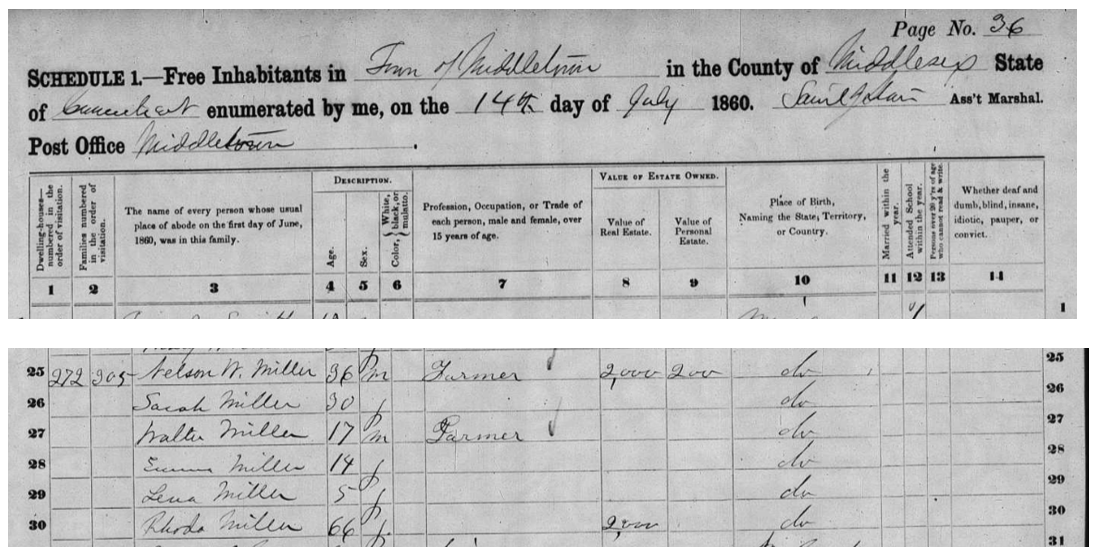 Page No. 36
SCHEDULE 1.—Free Inhabitants in Town of Middletown in the County of Middlesex State
of Connecticut enumerated by me, on the 14th day of July 1860. Ass't Marshal.
Post Office Middletown.
Dwelling-houses—numbered in the order of visitation.
Families numbered in the order of visitation.
The name of every person whose usual place of abode on the first day of June, 1860, was in this family.
DESCRIPTION.
Age.
Sex.
Color, { White, black, or mulatto.
Profession, Occupation, or Trade of each person, male and female, over 15 years of age.
VALUE OF ESTATE OWNED.
Value of Real Estate.
Value of Personal Estate.
Place of Birth, Naming the State, Territory, or Country.
Married within the year.
Attended School within the year.
Persons over 20 y'rs of age who cannot read & write.
Whether deaf and dumb, blind, insane, idiotic, pauper, or convict.
1 2 3 4 5 6 7 8 9 10 11 12 13 14
1
25 272 305 Nelson W. Miller 36 m Farmer 2,000 200 do 25
26 Sarah Miller 30 f do 26
27 Walter Miller 17 m Farmer do 27
28 Emma Miller 14 f do 28
29 Lena Miller 5 f do 29
30 Rhoda Miller 66 f 2,000 do 30
31